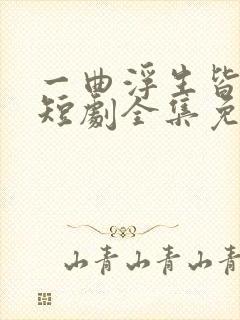 一曲浮生皆
短劇全集免
山青山青山青